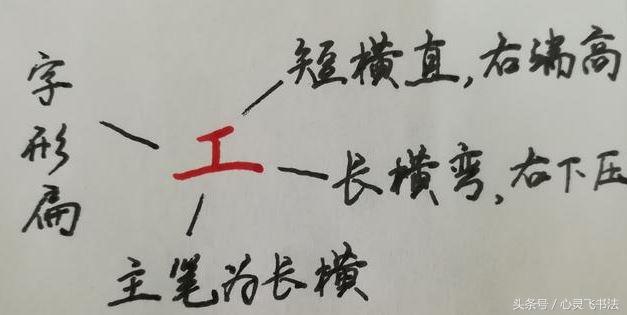 字形扁
工
短横直,右端高
长横弯,右下压
主笔为长横
头条号/心灵飞书法